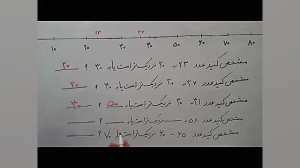 ۲۳ ۲۷
۱۰ ۲۰ ۳۰ ۴۰ ۵۰ ۶۰ ۷۰ ۸۰
مشخص کنید عدد ۲۳ به ۲۰ نزدیک‌تر است یا به ۳۰ ؟ ۲۰
مشخص کنید عدد ۲۷ به ۲۰ نزدیک‌تر است یا به ۳۰ ؟ ۳۰
مشخص کنید عدد به نزدیک‌تر است یا به ۵۰ ؟ ۳۰
مشخص کنید عدد ۵۸ به نزدیک‌تر است یا به ؟
مشخص کنید عدد ۶۵ به نزدیک‌تر است یا ۷۰ ؟